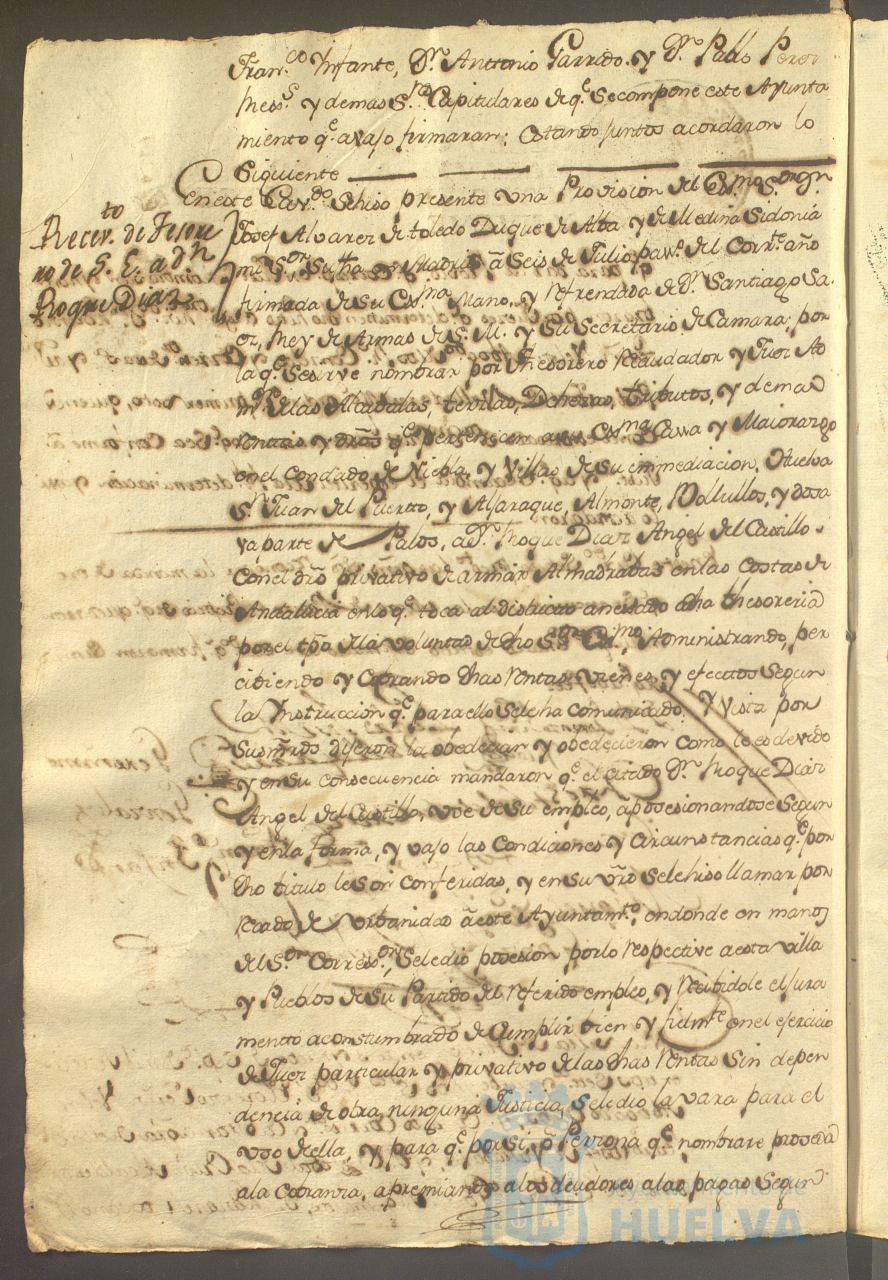 Fran.co Ynfante, D.n Antonio Garrido y D.n Pablo Perez
Mess.s y demas S.res Capitulares de q.e se compone este Ayunta
miento q.e avajo firmaran: estando juntos acordaron lo
Siguiente
En este Cav.do Sehiso presente una Provision del Ex.mo S.or D.n
Recev.to de Tesore
ro de S. E. a d.n
Roque Diaz
Josef Alvarez de toledo Duque de Alba y de Medina Sidonia
mi S.or Su fha en Madrid â Seis de Julio pas.do del Corr.te año
firmada de Su Ex.ma Mano, y Refrendada de D.n Santiago Sa
ez, Rey de Armas de S. M. y Su Secretario de Camara; por
la q.e Sesirve nombrar por Thesorero Recaudador y Juez
de las Alcabalas, tercias, Dehesas, tributos, y demas
Rentas y dros q.e pertenecen a su Ex.ma Cassa y Maiorazgo
en el Condado de Niebla, y Villas de Su immediacion, Huelva
S.n Juan del Puerto, y Aljaraque, Almonte, Bollullos, y dosa
va parte de Palos, a D.n Roque Diaz Angel del Castillo
Con el dro privativo de armar Almadrabas en las Costas de
Andalucia en lo q.e toca al districto anexado a dha thesoreria
por el tpo de la voluntad de dho S.or Ex.mo, Administrando, per
cibiendo y Cobrando dhas Rentas, vienes, y efectos Segun
la Ynstruccion q.e para ello Seleha comunicado. Y vista por
Susmrds dijeron la obedecian y obedecieron como les es devido
y en su consecuencia mandaron q.e el citado D.n Roque Diaz
Angel del Castillo, use de su empleo, apossesionandose Segun
y en la forma, y vajo las Condiciones y Circunstancias q.e por
dho titulo le son conferidas, y en su vro Selehiso llamar por
Recado de Urbanidad â este Ayuntam.to, en donde en manos
del S.or Correg.or, Seledio posesion por lo Respective a esta villa
y Pueblos de Su Partido del Referido empleo, y Recibidole el jura
mento acostumbrado de Cumplir bien y fielm.te en el ejercicio
de Juez particular y privativo de las dhas Rentas Sin depen
dencia de otra ninguna Justicia, Seledio la vara para el
uso de ella, y para q.e por Si, o Persona q.e nombrare proseda
a la Cobranza, apremiando a los deudores a las pagas Segun
Ayuntamiento de
HUELVA